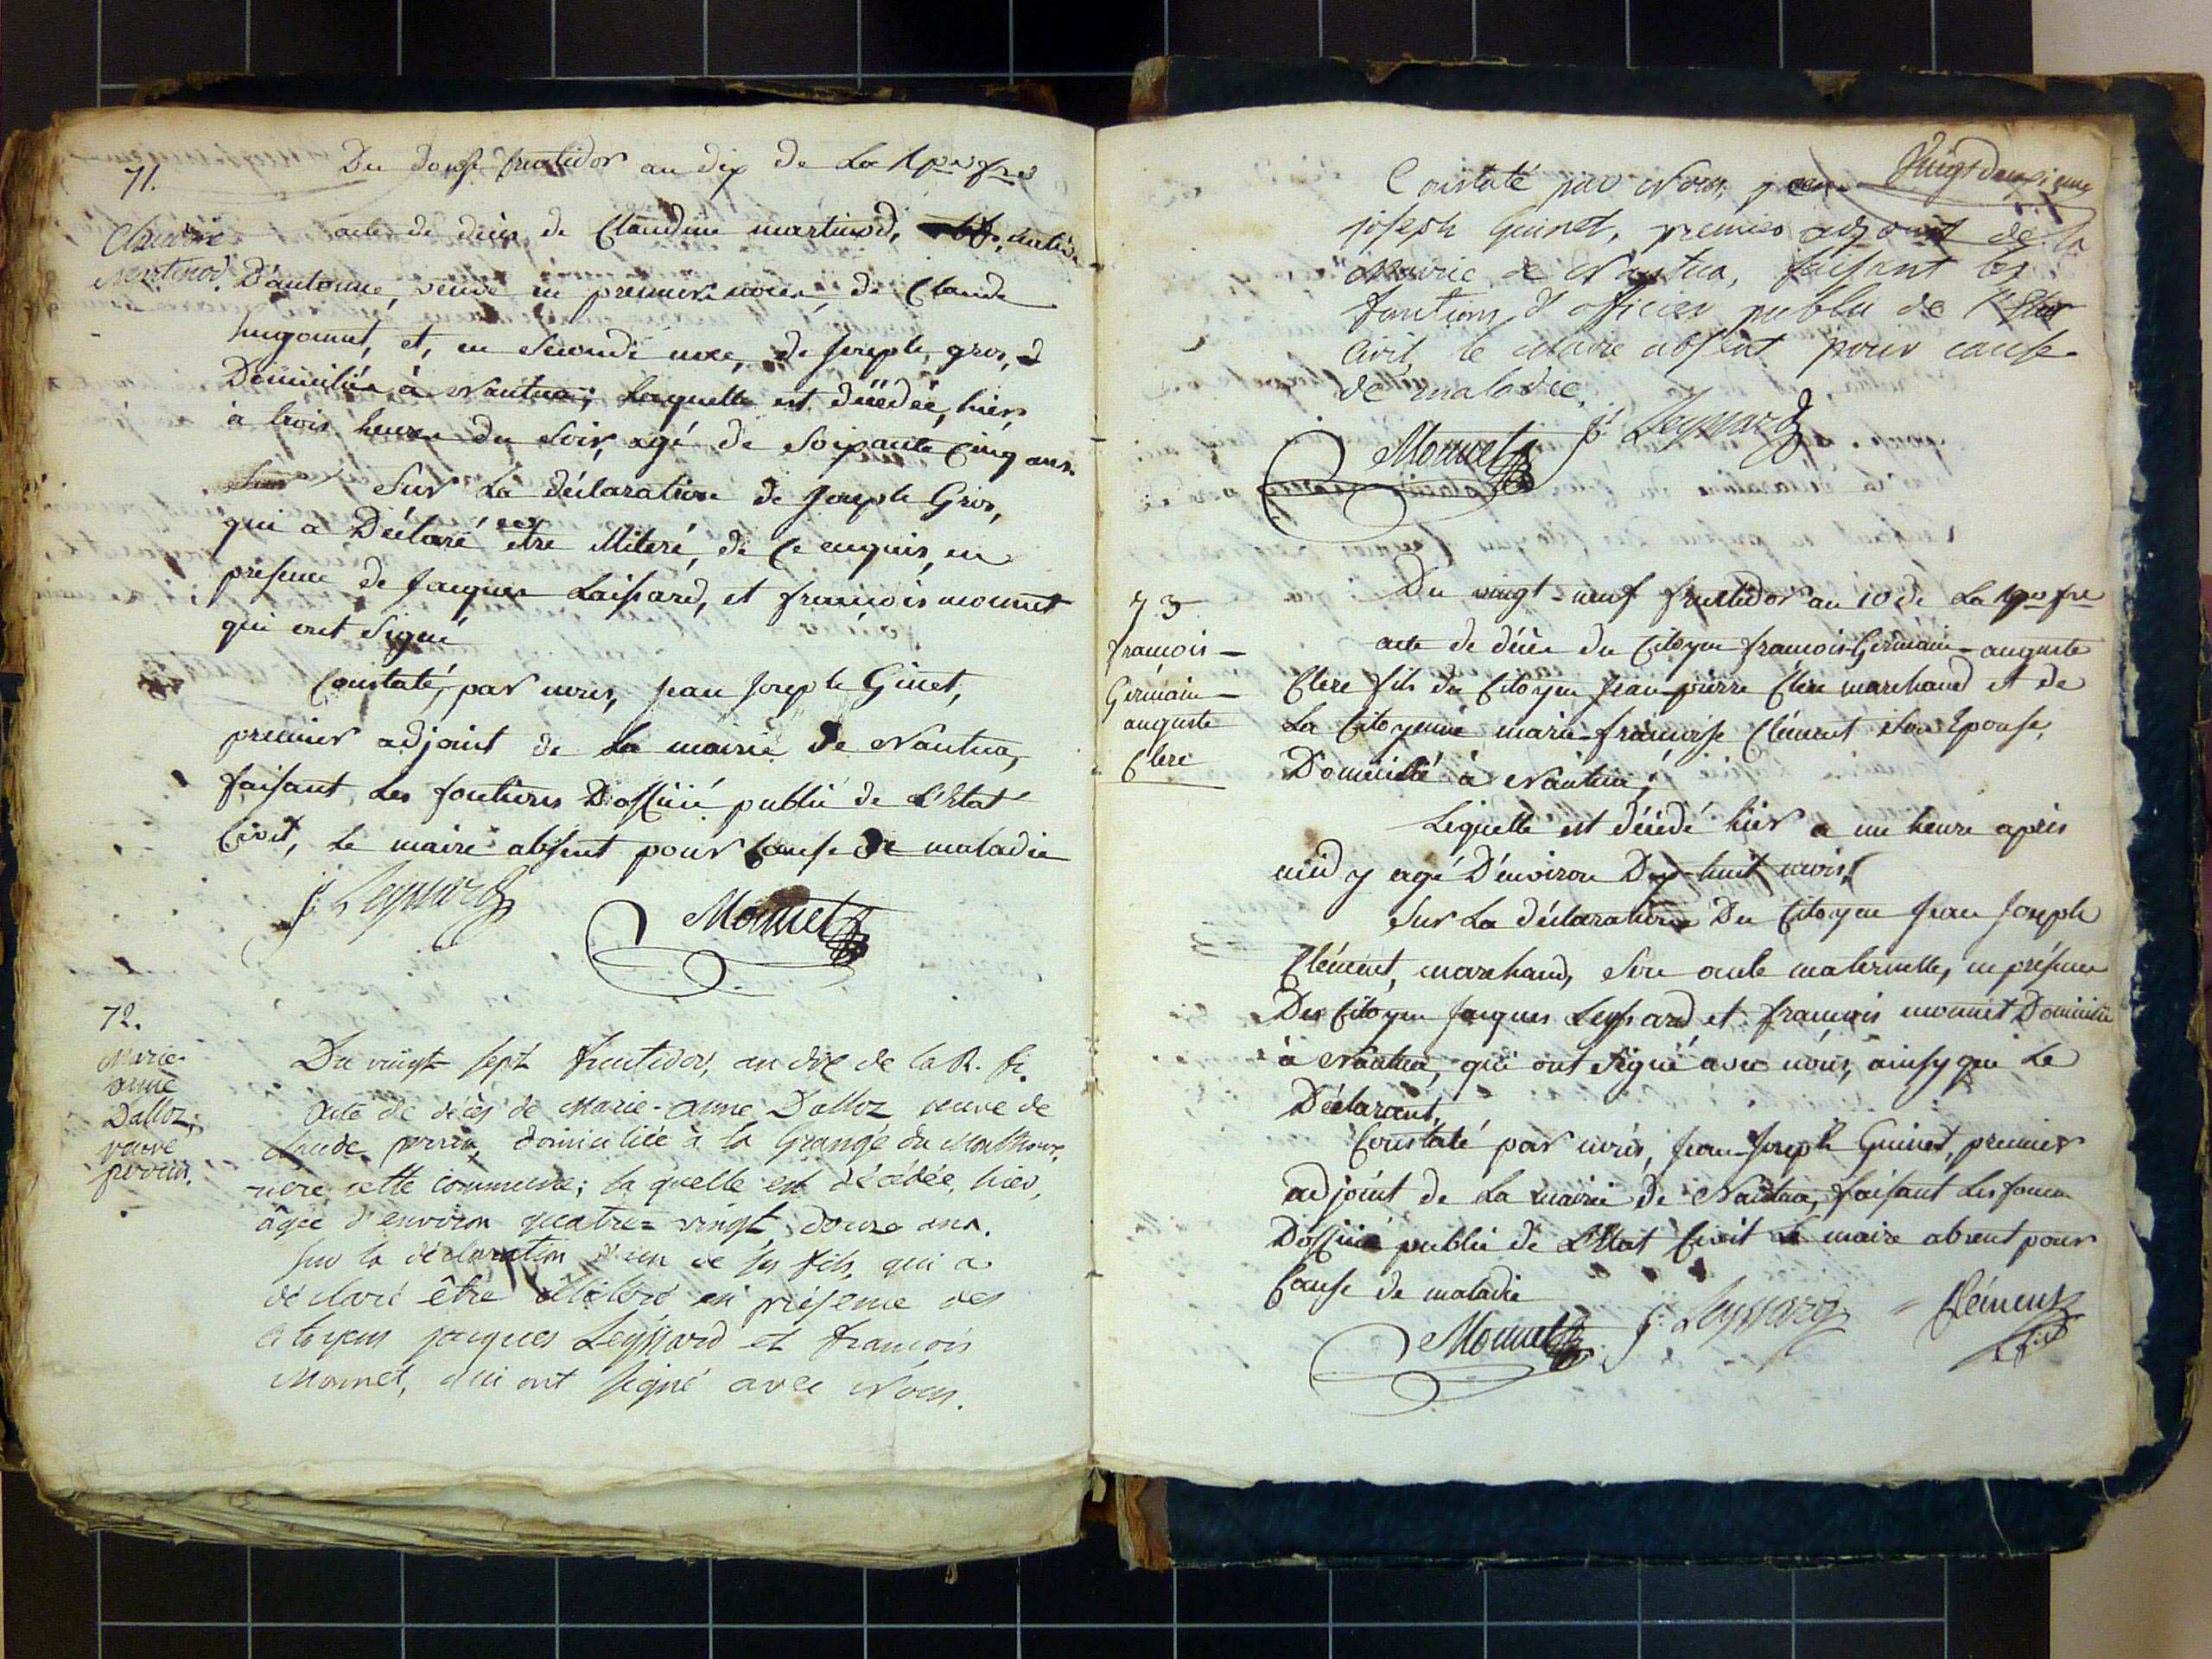 71.
Du douse fructidor an dix de La Rpque fse
Claudine
Martinod.
acte de décès de Claudine martinod,
D'antoine, veuve en premiere noce, de Claude
hugonnet, et, en Seconde noce, de Joseph gros,
Domiciliée à Nantua; Laquelle est décédée, hier,
à trois heures du Soir, agé de Soixante Cinq ans.
Sur La déclaration de Joseph Gros,
qui a Déclaré etre illiteré, de Ce enquis, en
presence de Jacques Laissard, et françois monnet
qui ont Signé
Constaté, par nous, Jean Joseph Ginet,
premier adjoint de La mairie de Nantua,
faisant Les fontions D'officié public de L'Etat
Civil, Le maire absent pour Cause De maladie
J. Leyssard
Monnet
72.
Marie-
anne
Dalloz,
veuve
perrin.
Du vingt-sept fructidor, an dix de la R. f.
Acte de décès de Marie-anne Dalloz veuve de
Claude perrin, domiciliée à la Grange du
cette commune; la quelle est décédée, hier,
âgée d'environ quatre-vingt douze ans.
Sur la déclaration d'un de ses fils, qui a
déclaré être illitéré en présence des
Citoyens jacques Leyssard et francois
Monnet, qui ont signé avec Nous.
Vingt deuxieme
Constaté par Nous, jean
joseph Guinet, premier adjoint de la
Mairie de Nantua, faisant les
fonctions d'officier public de l'Etat
Civil, le Maire absent pour cause
de maladie.
Monnet J. Leyssard
73
françois-
Germain-
auguste
Clerc
Du vingt-neuf fructidor an 10 de La Rpque fse
acte de décès du Citoyen francois-Germain-auguste
Clerc fils du Citoyen Jean-pierre Clerc marchand et de
La Citoyenne marie-françoise Clément Son Epouse,
Domicilié à Nantua;
Lequelle est décédé hier a une heure après
midy agé D'environ Dix-huit mois;
Sur La déclaration Du Citoyen Jean Joseph
Clément, marchand, Son oncle maternelle, en présence
Des Citoyen Jacques Leyssard et francois monnet Domicilié
à Nantua, qui ont Signé avec nous, ainsy que Le
Déclarant,
Constaté par nous, Jean-Joseph Guinet, premier
adjoint de La mairie de Nantua, faisant Les
D'officié public de L'Etat Civil Le maire absent pour
Cause de maladie
Monnet J. Leyssard Clément